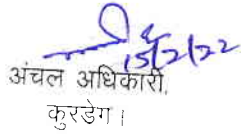 15/2/22
अंचल अधिकारी,
कुरडेग।